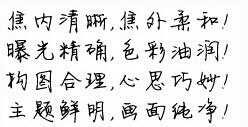 焦内清晰,焦外柔和!
曝光精确,色彩油润!
构图合理,心思巧妙!
主题鲜明,画面纯净!